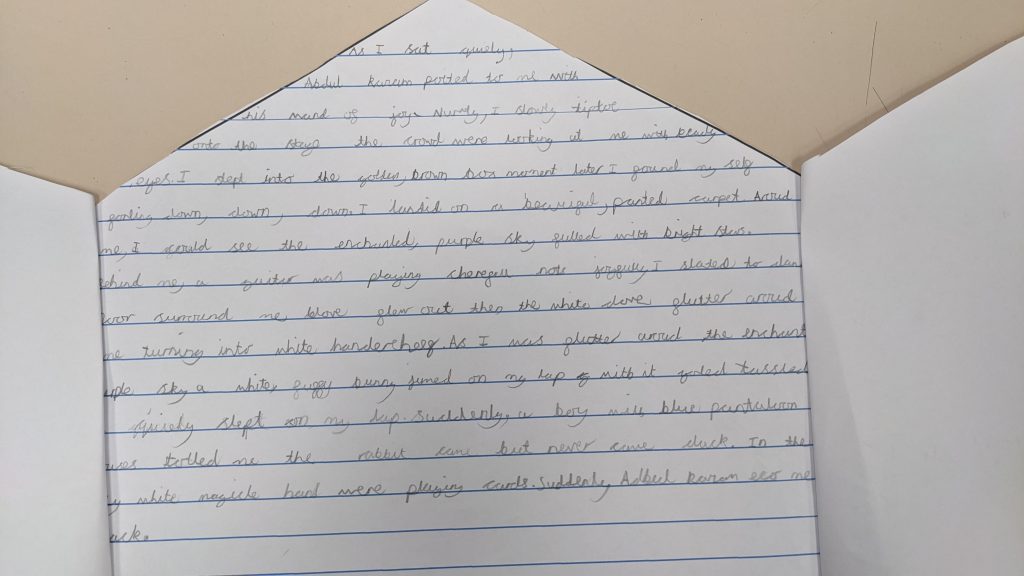 As I sat quiely,
Abdul Karam potted to me with
his mand of joy. Nurvdy, I slowly tiptoe
onto the stage the crowd were looking at me with beauty
eyes. I slept into the golden, brown box moment later I found my self
going down, down, down. I landid on a beauiful, panted carpet. Aroud
me, I could see the enchanted, purple sky filled with bright stars.
ehind me, a guiter was playing cherefull note joyfully, I stated to dan
surround me blove glew out then the white dove flutter aroud
me turning into white handercheef. As I was flutter aroud the enchant
rple sky a white, fuffy bunny jumed on my lap with it goled tassled
quiely slept on my lap. Suddenly, a boy with blue pantaloon
was me the rabbit came but never came duck. In the
y white magicle hand were playing cards. Suddenly Adbul Karam eco me
ack.